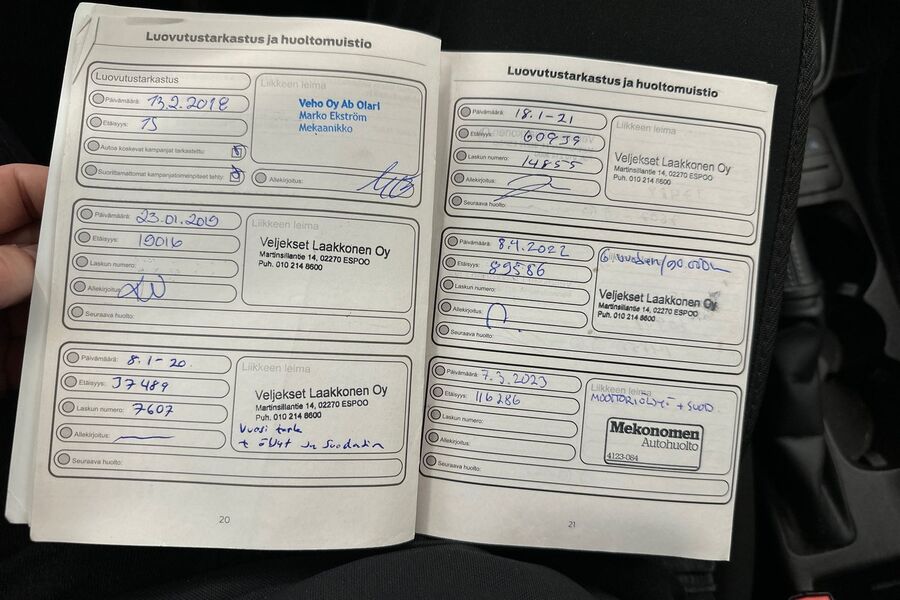 Luovutustarkastus ja huoltomuistio
Luovutustarkastus
Päivämäärä: 13.2.2018
Etäisyys: 15
Autoa koskevat kampanjat tarkastettu:
Suorittamattomat kampanjatoimenpiteet tehty:
Liikkeen leima
Veho Oy Ab Olari
Marko Ekström
Mekaanikko
Allekirjoitus:
Päivämäärä: 23.01.2019
Etäisyys: 19016
Laskun numero:
Allekirjoitus:
Seuraava huolto:
Liikkeen leima
Veljekset Laakkonen Oy
Martinsillantie 14, 02270 ESPOO
Puh. 010 214 8600
Päivämäärä: 8.1-20.
Etäisyys: 37489
Laskun numero: 7607
Allekirjoitus:
Seuraava huolto:
Liikkeen leima
Veljekset Laakkonen Oy
Martinsillantie 14, 02270 ESPOO
Puh. 010 214 8600
Vuosi tark
+ öljyt ja suodatin
20
Luovutustarkastus ja huoltomuistio
Päivämäärä: 18.1-21
Etäisyys: 60939
Laskun numero: 14855
Allekirjoitus:
Seuraava huolto:
Liikkeen leima
Veljekset Laakkonen Oy
Martinsillantie 14, 02270 ESPOO
Puh. 010 214 8600
Päivämäärä: 8.4.2022
Etäisyys: 89586
Laskun numero:
Allekirjoitus:
Seuraava huolto:
6 vuoden/90.000k
Veljekset Laakkonen Oy
Martinsillantie 14, 02270 ESPOO
Puh. 010 214 8600
Päivämäärä: 7.3.2023
Etäisyys: 116286
Laskun numero:
Allekirjoitus:
Seuraava huolto:
Liikkeen leima
MOOTTORIÖLJYT + SUOD.
Mekonomen
Autohuolto
4123-084
21